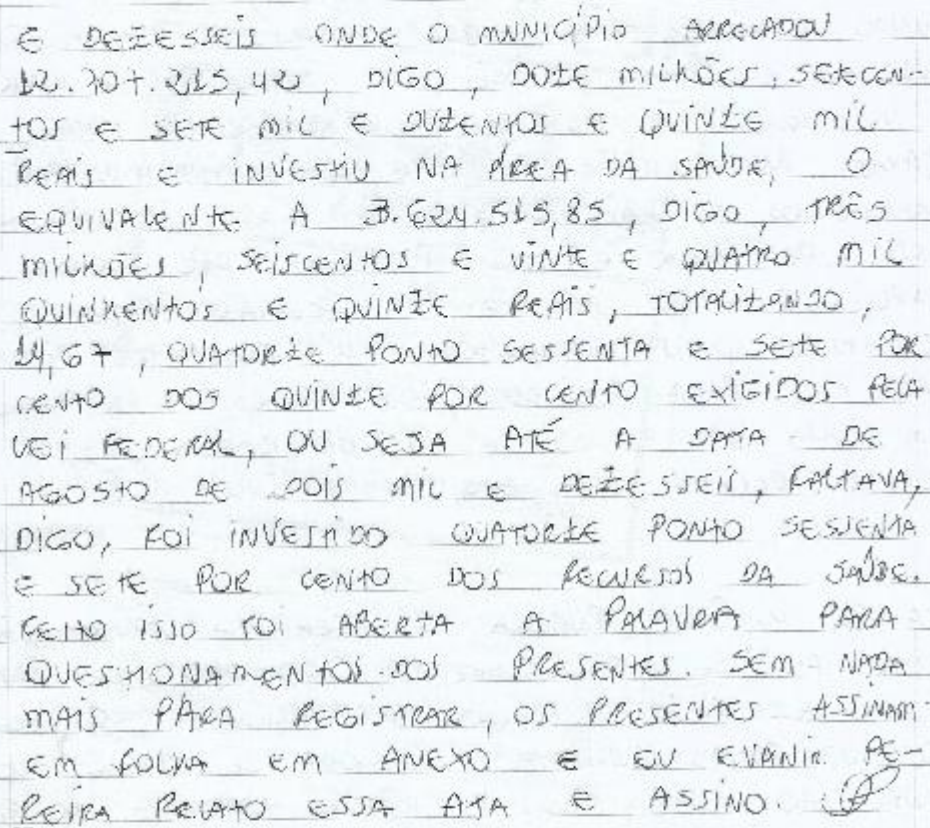 E DEZESSEIS ONDE O MUNICÍPIO ARRECADOU
12.707.215,42, DIGO, DOZE MILHÕES, SETECEN-
TOS E SETE MIL E DUZENTOS E QUINZE MIL
REAIS E INVESTIU NA ÁREA DA SAÚDE, O
EQUIVALENTE A 3.624,515,85, DIGO, TRÊS
MILHÕES, SEISCENTOS E VINTE E QUATRO MIL
QUINHENTOS E QUINZE REAIS, TOTALIZANDO,
14,67, QUATORZE PONTO SESSENTA E SETE POR
CENTO DOS QUINZE POR CENTO EXIGIDOS PELA
LEI FEDERAL, OU SEJA ATÉ A DATA DE
AGOSTO DE DOIS MIL E DEZESSEIS, FALTAVA,
DIGO, FOI INVESTIDO QUATORZE PONTO SESSENTA
E SETE POR CENTO DOS RECURSOS DA SAÚDE.
FEITO ISSO FOI ABERTA A PALAVRA PARA
QUESTIONAMENTOS DOS PRESENTES. SEM NADA
MAIS PARA REGISTRAR, OS PRESENTES ASSINAM
EM FOLHA EM ANEXO E EU EVANIR PE-
REIRA RELATO ESSA ATA E ASSINO